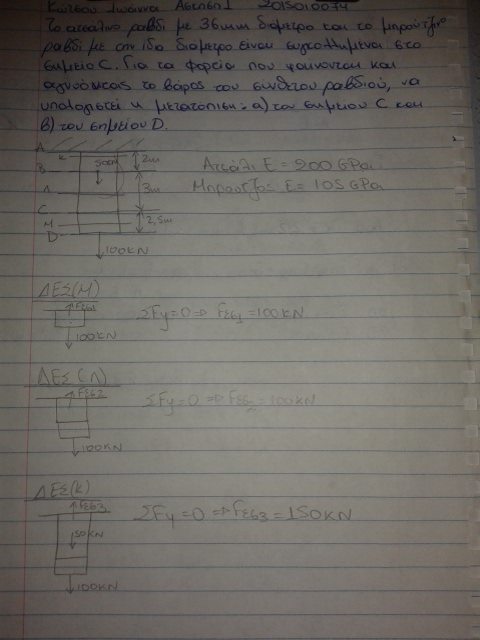 Κώτσου Ιωάννα Άσκηση 1 2015010074
Το ατσάλινο ραβδί με 36mm διάμετρο και το μπρούτζινο
ραβδί με την ίδια διάμετρο είναι συγκολλημένα στο
σημείο C. Για τα φορτία που φαίνονται και
αγνοώντας το βάρος του σύνθετου ραβδιού, να
υπολογιστεί η μετατόπιση: α) του σημείου C και
β) του σημείου D.
A
K
50kN
2m
B
Λ
3m
C
M
2,5m
D
100KN
Ατσάλι E = 200 GPa
Μπρούτζο= E = 105 GPa
ΔΕΣ(Μ)
Fεσ1
100KN
ΣFy=0 => Fεσ1 = 100KN
ΔΕΣ(Λ)
Fεσ2
100KN
ΣFy=0 => Fεσ2 = 100KN
ΔΕΣ(κ)
Fεσ3
50KN
100KN
ΣFy=0 => Fεσ3 = 150KN